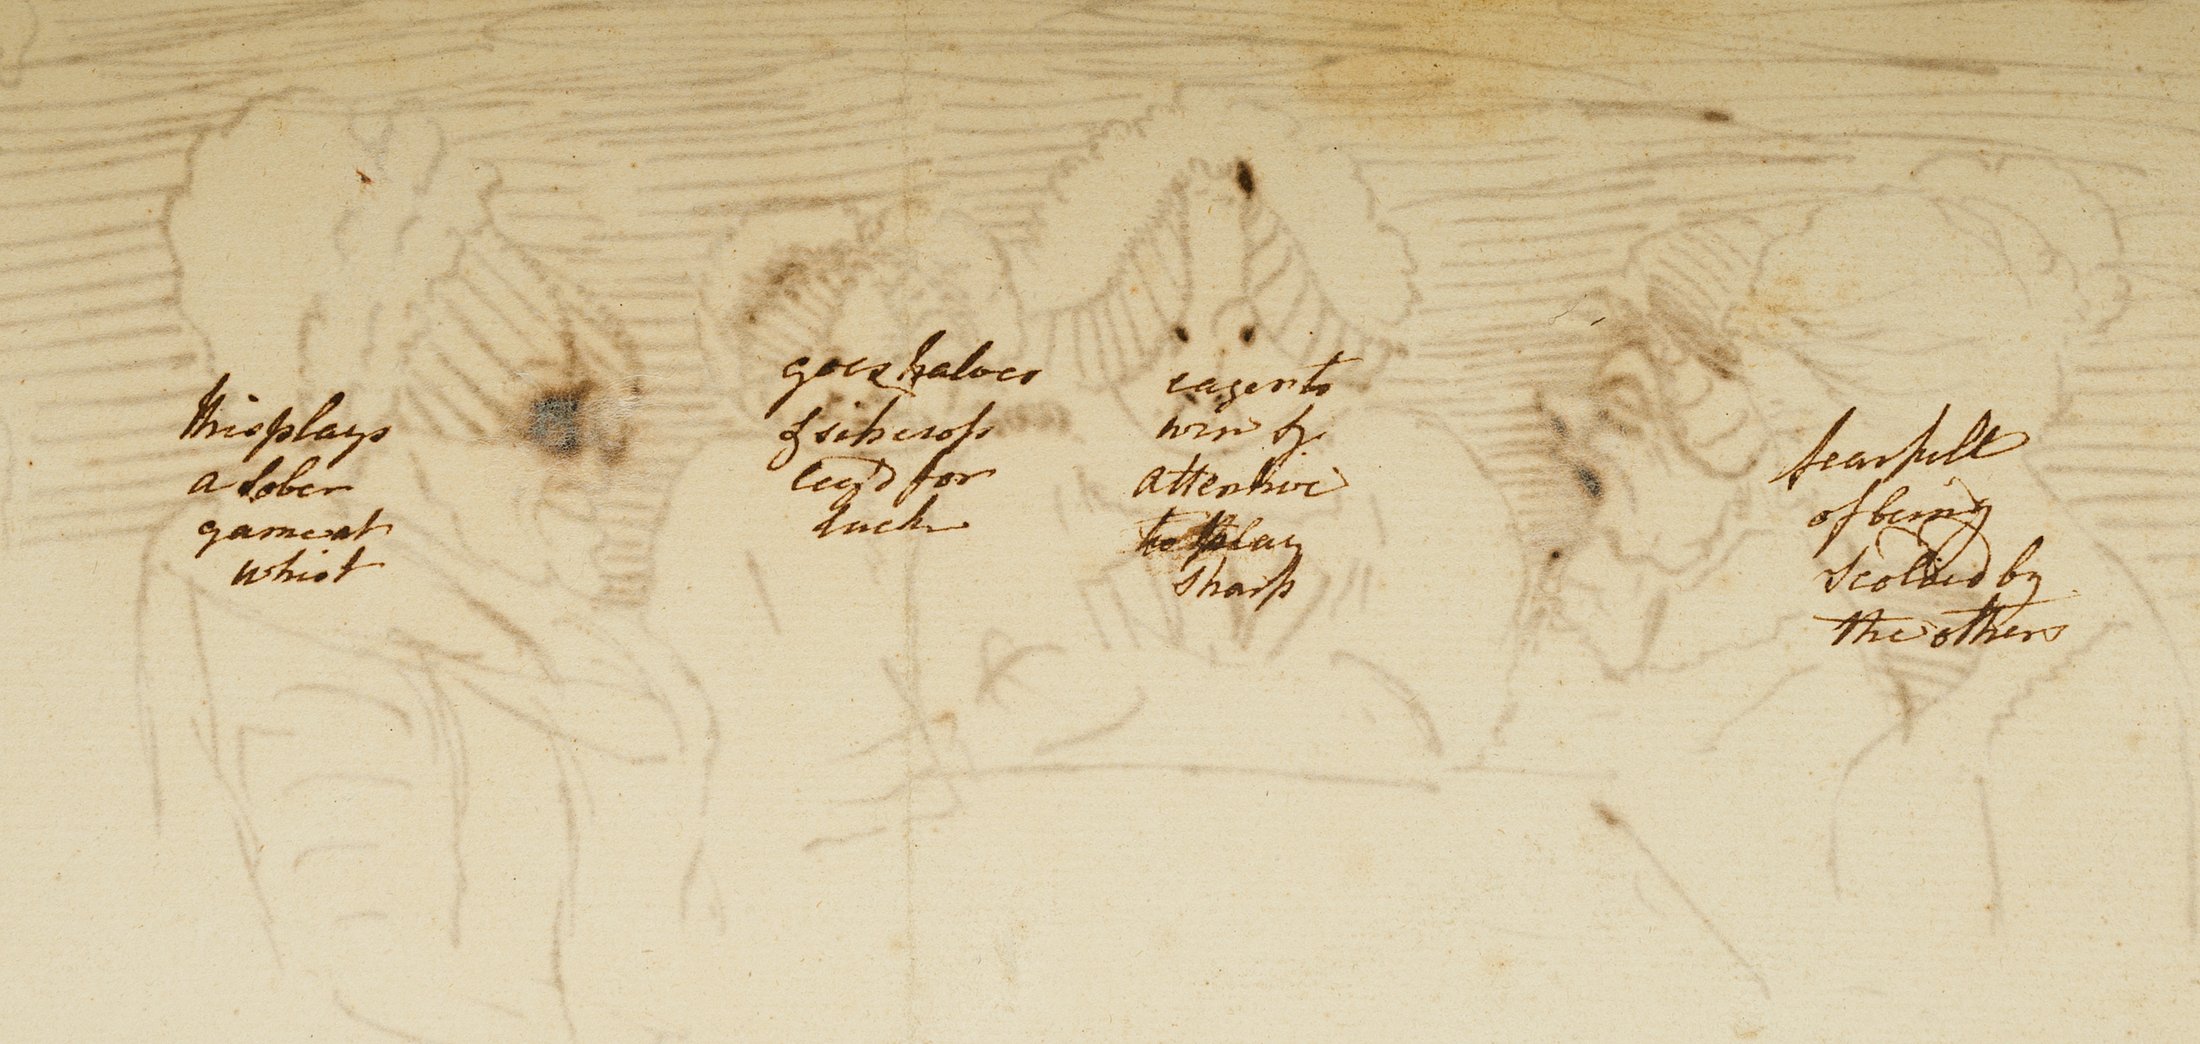 this plays
a sober
game at
whist
goes halves
& sits cross
leg'd for
luck
eager to
win &
attentive
to play
sharp
fearfull
of being
scolded by
the others